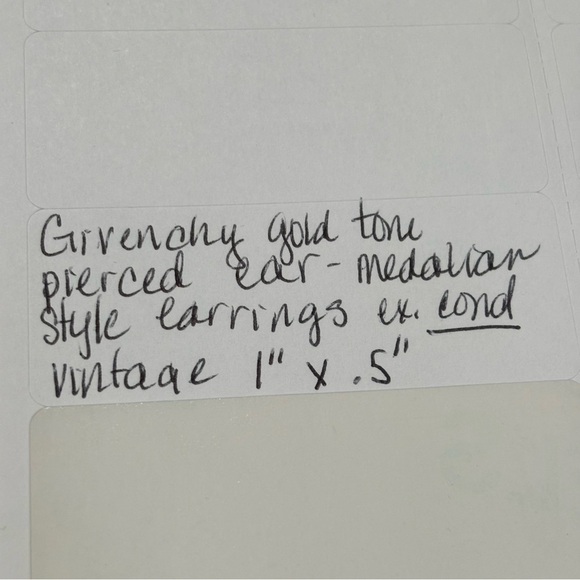 Givenchy gold tone
pierced ear - medalian
style earrings ex. cond
vintage 1" x .5"